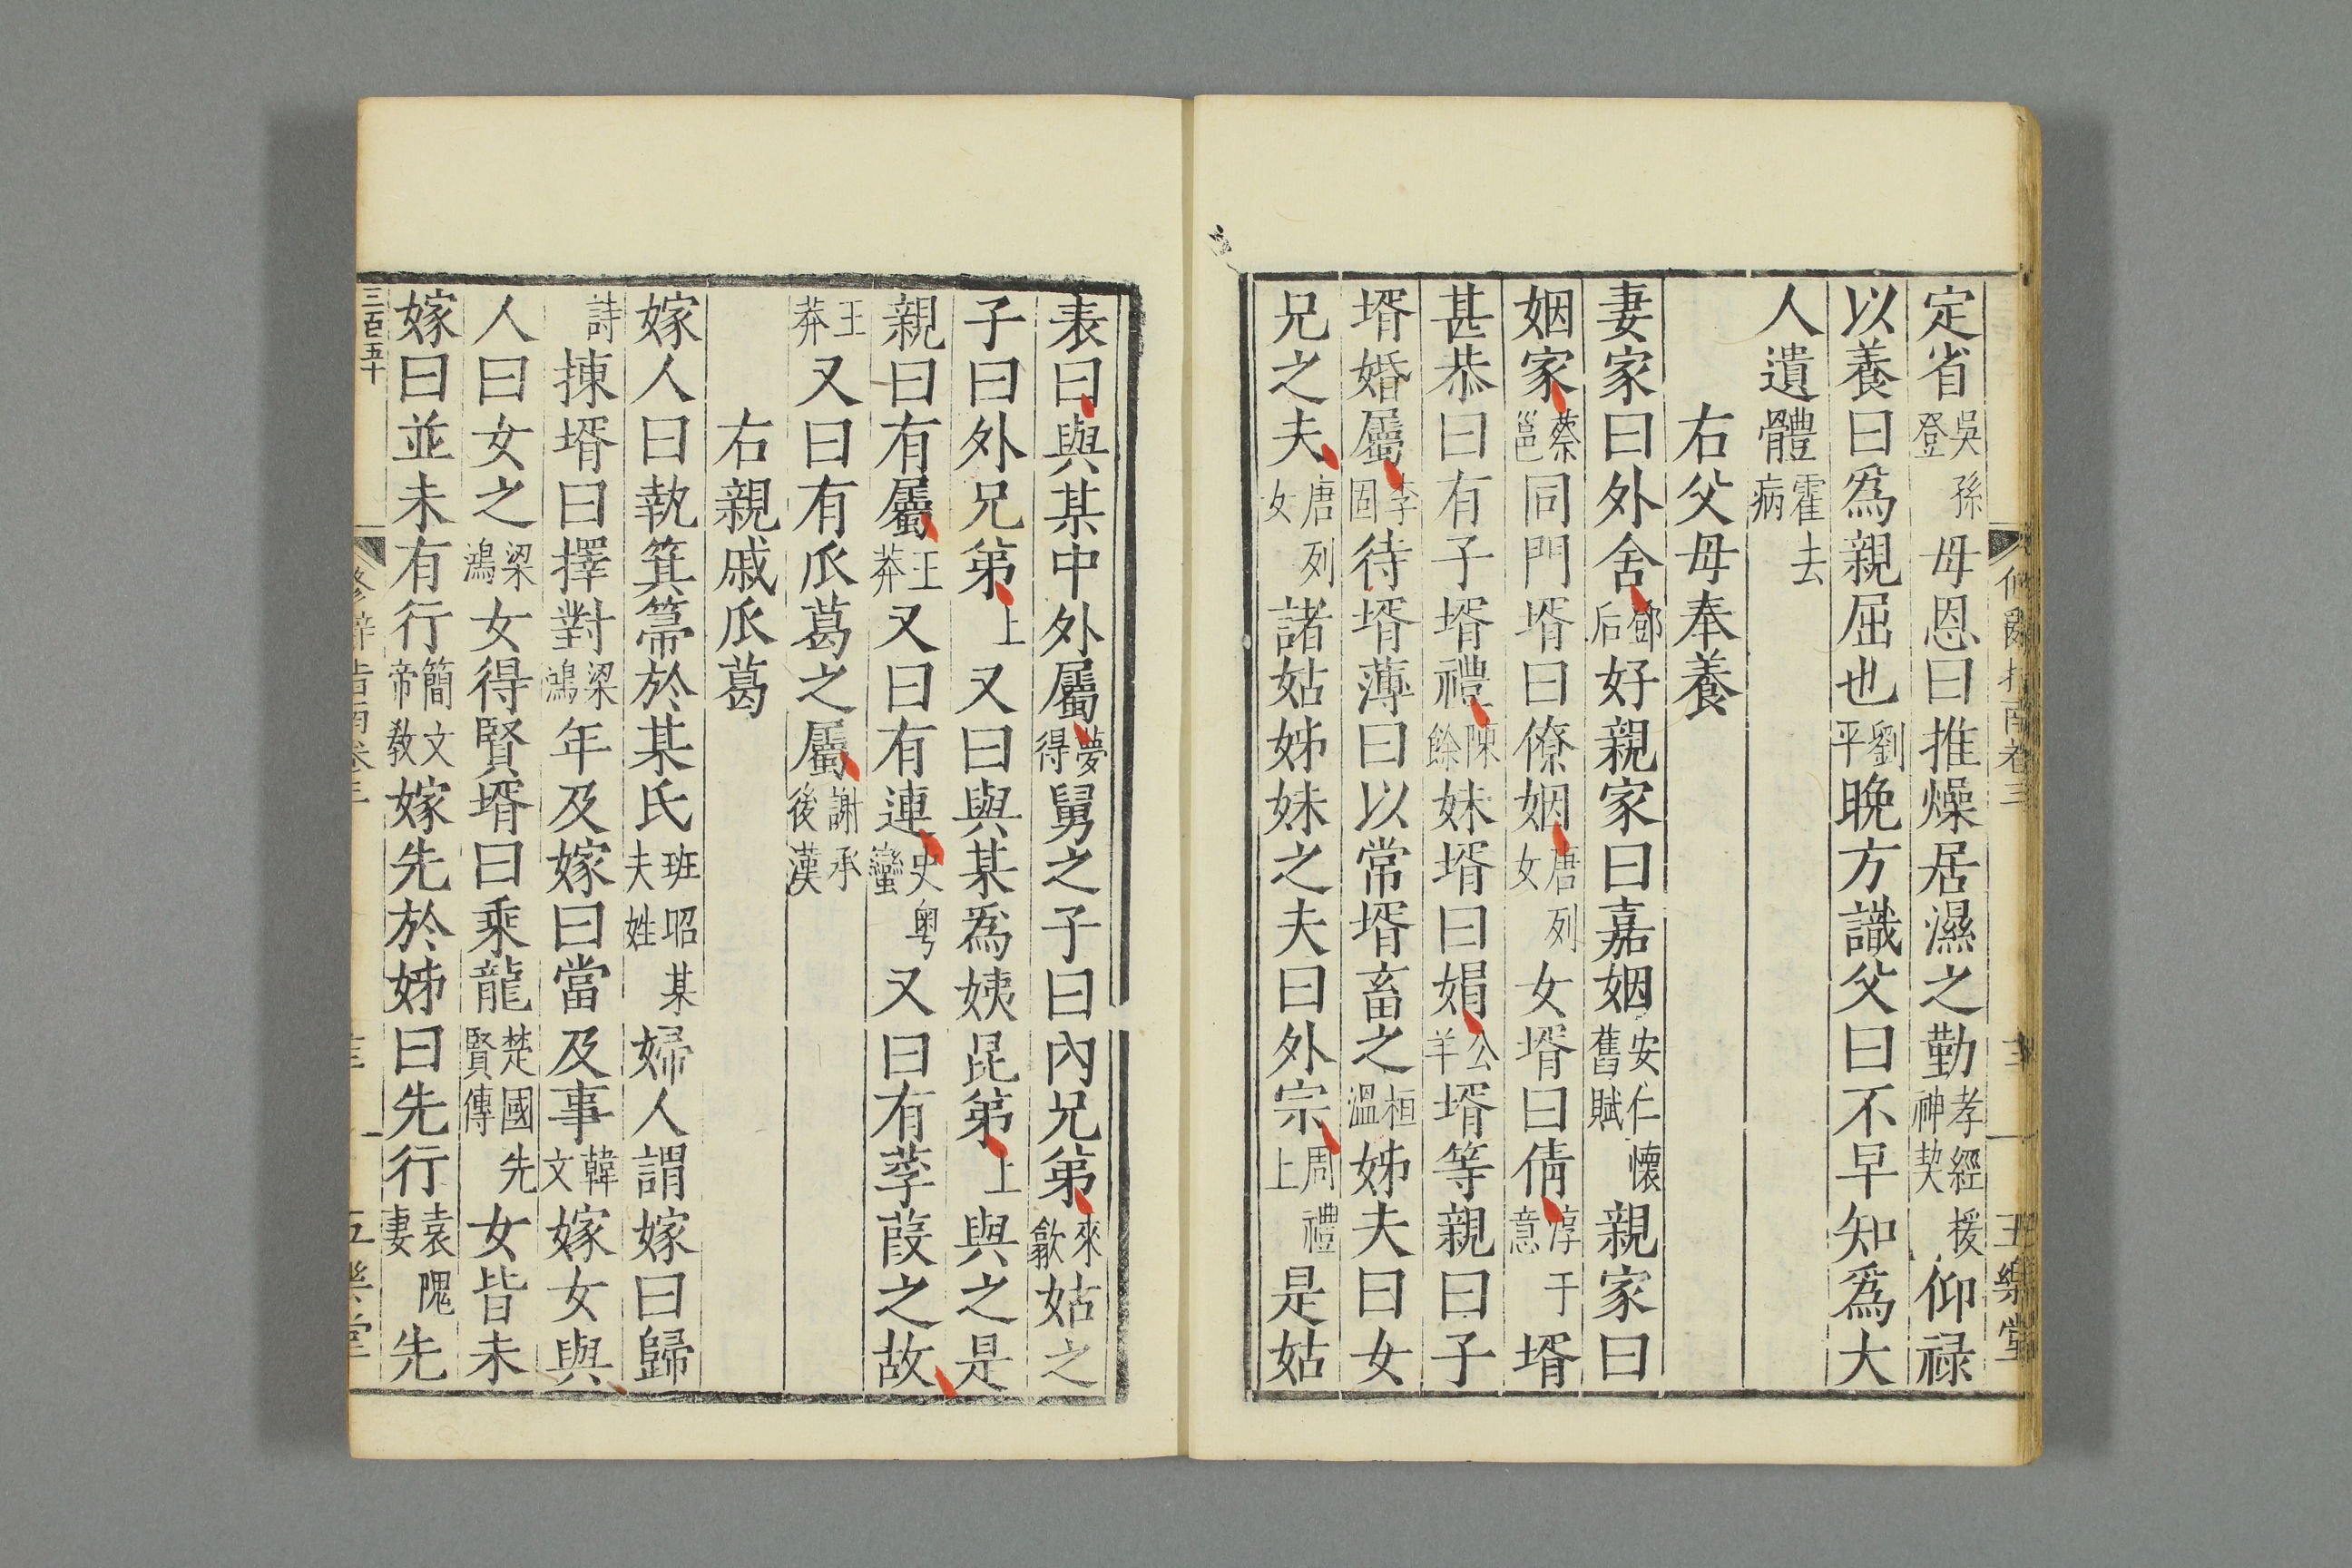 定省吳登孫母恩曰推燥居濕之勤孝經援神契仰禄
以養曰爲親屈也劉平晚方識父曰不早知爲大
人遺體霍去病
右父母奉養
妻家曰外舍鄧后好親家曰嘉姻安仁懷舊賦親家曰
姻家蔡邕同門壻曰僚姻唐列女女壻曰倩淳于意壻
甚恭曰有子壻禮陳餘妹壻曰娟公羊壻等親曰子
壻婚屬李固待壻薄曰以常壻畜之桓溫姊夫曰女
兄之夫唐列女諸姑姊妹之夫曰外宗周禮上是姑
表曰與某中外屬夢得舅之子曰內兄弟來歙姑之
子曰外兄弟上又曰與某爲姨昆弟上與之是
親曰有屬王莽又曰有連史粤蠻又曰有莩葭之故
王莽又曰有瓜葛之屬謝承後漢
右親戚瓜葛
嫁人曰執箕箒於某氏班昭夫姓某婦人謂嫁曰歸
詩揀壻曰擇對梁鴻年及嫁曰當及事韓文嫁女與
人曰女之梁鴻女得賢壻曰乘龍楚國先賢傳女皆未
嫁曰並未有行簡文帝教嫁先於姊曰先行袁隗妻先
三百五十